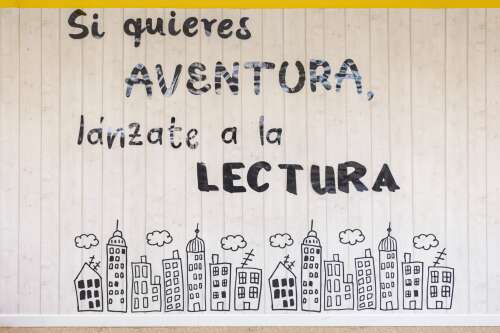 Si quieres
AVENTURA,
lánzate a la
LECTURA